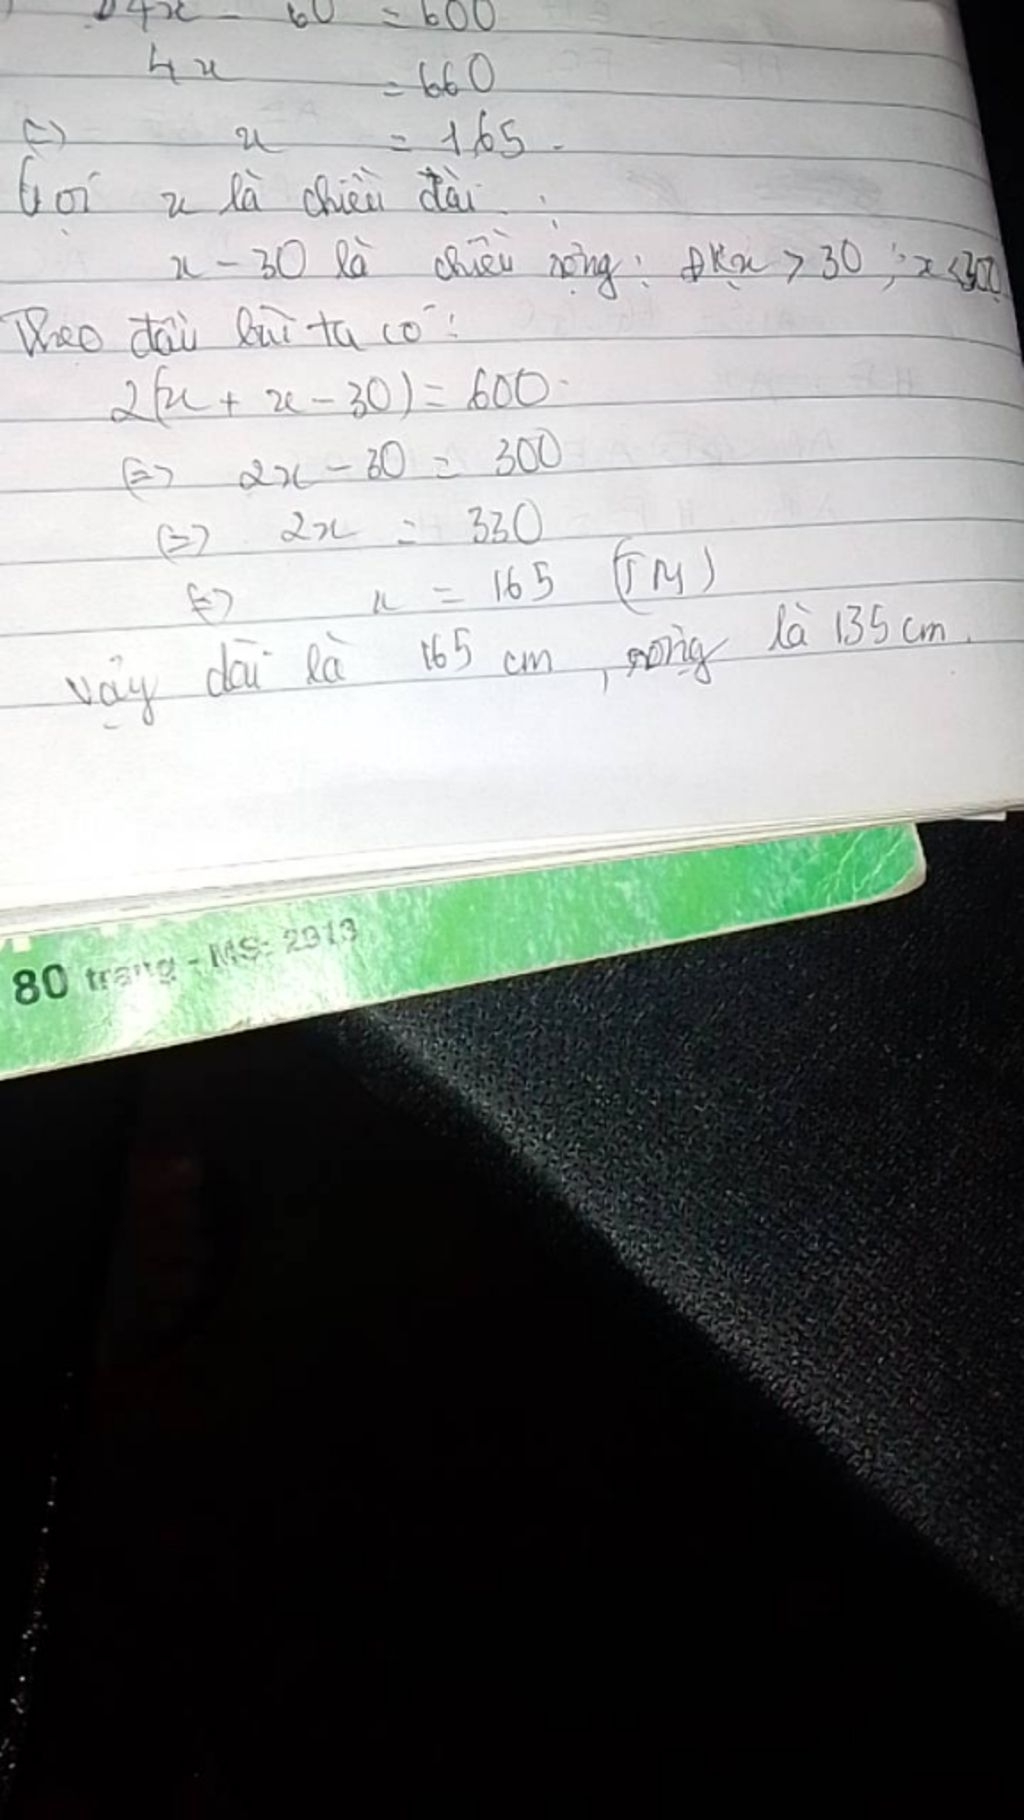 4x - 60 = 600
4x = 660
<=> x = 165.
Gọi x là chiều dài.
x - 30 là chiều rộng: ĐK x > 30; x < 300
Theo đầu bài ta có:
2(x + x - 30) = 600
<=> 2x - 30 = 300
<=> 2x = 330
<=> x = 165 (TM)
vậy dài là 165 cm, rộng là 135 cm.
80 trang - MS: 2913